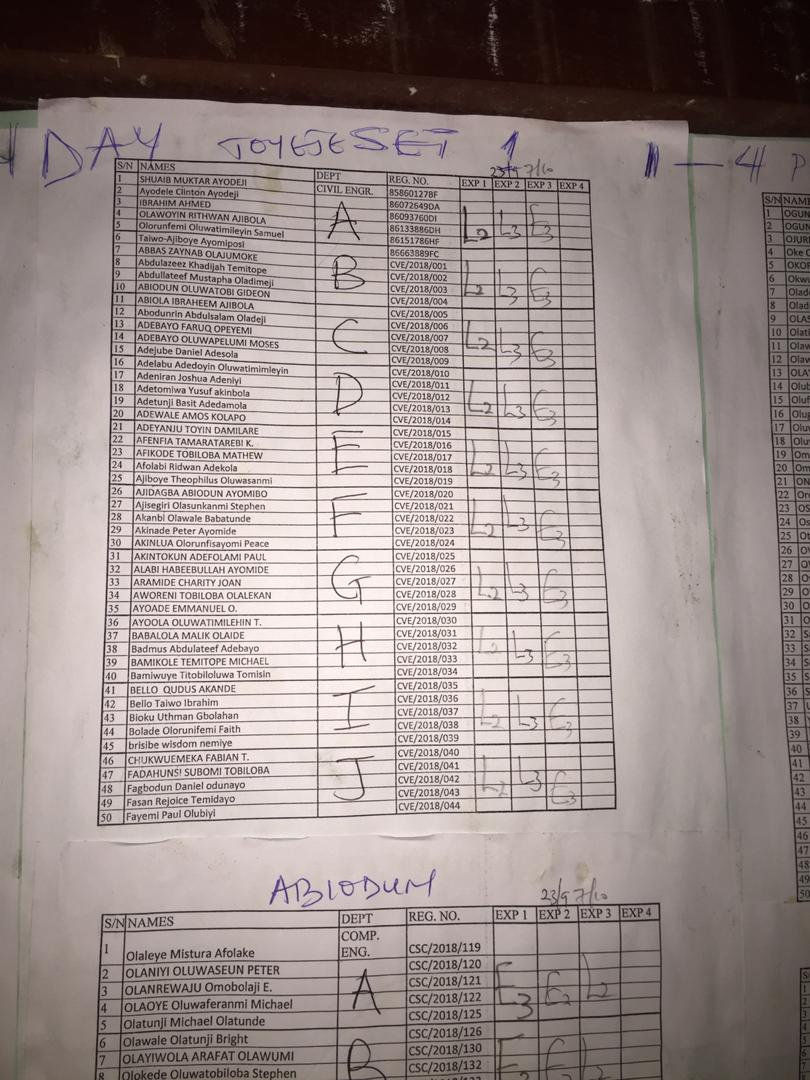 DAY TOYEJE SET 1
1 - 4
23/9 7/10
S/N NAMES DEPT REG. NO. EXP 1 EXP 2 EXP 3 EXP 4
CIVIL ENGR.
1 SHUAIB MUKTAR AYODEJI 85860127BF
2 Ayodele Clinton Ayodeji 86072649DA
3 IBRAHIM AHMED 86093760DI
4 OLAWOYIN RITHWAN AJIBOLA 86133886DH
5 Olorunfemi Oluwatimileyin Samuel 86151786HF
A L2 L3 E3
6 Taiwo-Ajiboye Ayomiposi 86663889FC
7 ABBAS ZAYNAB OLAJUMOKE CVE/2018/001
8 Abdulazeez Khadijah Temitope CVE/2018/002
9 Abdullateef Mustapha Oladimeji CVE/2018/003
10 ABIODUN OLUWATOBI GIDEON CVE/2018/004
B L2 L3 E3
11 ABIOLA IBRAHEEM AJIBOLA CVE/2018/005
12 Abodunrin Abdulsalam Oladeji CVE/2018/006
13 ADEBAYO FARUQ OPEYEMI CVE/2018/007
14 ADEBAYO OLUWAPELUMI MOSES CVE/2018/008
15 Adejube Daniel Adesola CVE/2018/009
C L2 L3 E3
16 Adelabu Adedoyin Oluwatimimleyin CVE/2018/010
17 Adeniran Joshua Adeniyi CVE/2018/011
18 Adetomiwa Yusuf akinbola CVE/2018/012
19 Adetunji Basit Adedamola CVE/2018/013
20 ADEWALE AMOS KOLAPO CVE/2018/014
D L2 L3 E3
21 ADEYANJU TOYIN DAMILARE CVE/2018/015
22 AFENFIA TAMARATAREBI K. CVE/2018/016
23 AFIKODE TOBILOBA MATHEW CVE/2018/017
24 Afolabi Ridwan Adekola CVE/2018/018
25 Ajiboye Theophilus Oluwasanmi CVE/2018/019
E L2 L3 E3
26 AJIDAGBA ABIODUN AYOMIBO CVE/2018/020
27 Ajisegiri Olasunkanmi Stephen CVE/2018/021
28 Akanbi Olawale Babatunde CVE/2018/022
29 Akinade Peter Ayomide CVE/2018/023
30 AKINLUA Olorunfisayomi Peace CVE/2018/024
F L2 L3 E3
31 AKINTOKUN ADEFOLAMI PAUL CVE/2018/025
32 ALABI HABEEBULLAH AYOMIDE CVE/2018/026
33 ARAMIDE CHARITY JOAN CVE/2018/027
34 AWORENI TOBILOBA OLALEKAN CVE/2018/028
35 AYOADE EMMANUEL O. CVE/2018/029
G L2 L3 E3
36 AYOOLA OLUWATIMILEHIN T. CVE/2018/030
37 BABALOLA MALIK OLAIDE CVE/2018/031
38 Badmus Abdulateef Adebayo CVE/2018/032
39 BAMIKOLE TEMITOPE MICHAEL CVE/2018/033
40 Bamiwuye Titobiloluwa Tomisin CVE/2018/034
H L2 L3 E3
41 BELLO QUDUS AKANDE CVE/2018/035
42 Bello Taiwo Ibrahim CVE/2018/036
43 Bioku Uthman Gbolahan CVE/2018/037
44 Bolade Olorunifemi Faith CVE/2018/038
45 brisibe wisdom nemiye CVE/2018/039
I L2 L3 E3
46 CHUKWUEMEKA FABIAN T. CVE/2018/040
47 FADAHUNSI SUBOMI TOBILOBA CVE/2018/041
48 Fagbodun Daniel odunayo CVE/2018/042
49 Fasan Rejoice Temidayo CVE/2018/043
50 Fayemi Paul Olubiyi CVE/2018/044
J L2 L3 E3
ABIODUN
23/9 7/10
S/N NAMES DEPT REG. NO. EXP 1 EXP 2 EXP 3 EXP 4
COMP. ENG.
1 Olaleye Mistura Afolake CSC/2018/119
2 OLANIYI OLUWASEUN PETER CSC/2018/120
3 OLANREWAJU Omobolaji E. CSC/2018/121
4 OLAOYE Oluwaferanmi Michael CSC/2018/122
5 Olatunji Michael Olatunde CSC/2018/125
A E3 E2 L2
6 Olawale Olatunji Bright CSC/2018/126
7 OLAYIWOLA ARAFAT OLAWUMI CSC/2018/130
8 Olokede Oluwatobiloba Stephen CSC/2018/132
B
S/N NAME
1 OGUN
2 OGUN
3 OJUR
4 Oke
5 OKO
6 Okwu
7 Olad
8 Olad
9 OLAS
10 Olati
11 Olaw
12 Olaw
13 OLA
14 Olub
15 Oluf
16 Olup
17 Olu
18 Olu
19 Om
20 Om
21 ON
22 Or
23 OS
24 Ot
25 Ot
26 O
27
28
29
30
31
32
33
34
35
36
37
38
39
40
41
42
43
44
45
46
47
48
49
50